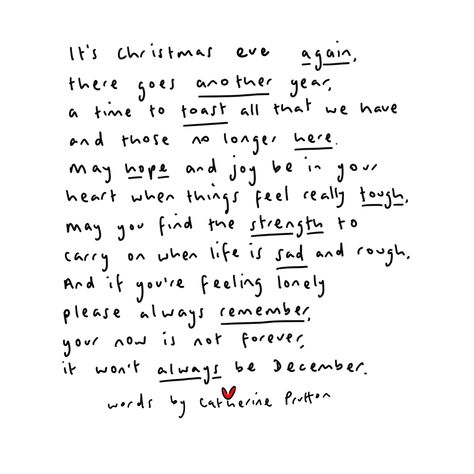 It's Christmas eve again,
there goes another year,
a time to toast all that we have
and those no longer here.
May hope and joy be in your
heart when things feel really tough,
may you find the strength to
carry on when life is sad and rough.
And if you're feeling lonely
please always remember,
your now is not forever,
it won't always be December.
words by Catherine Prutton